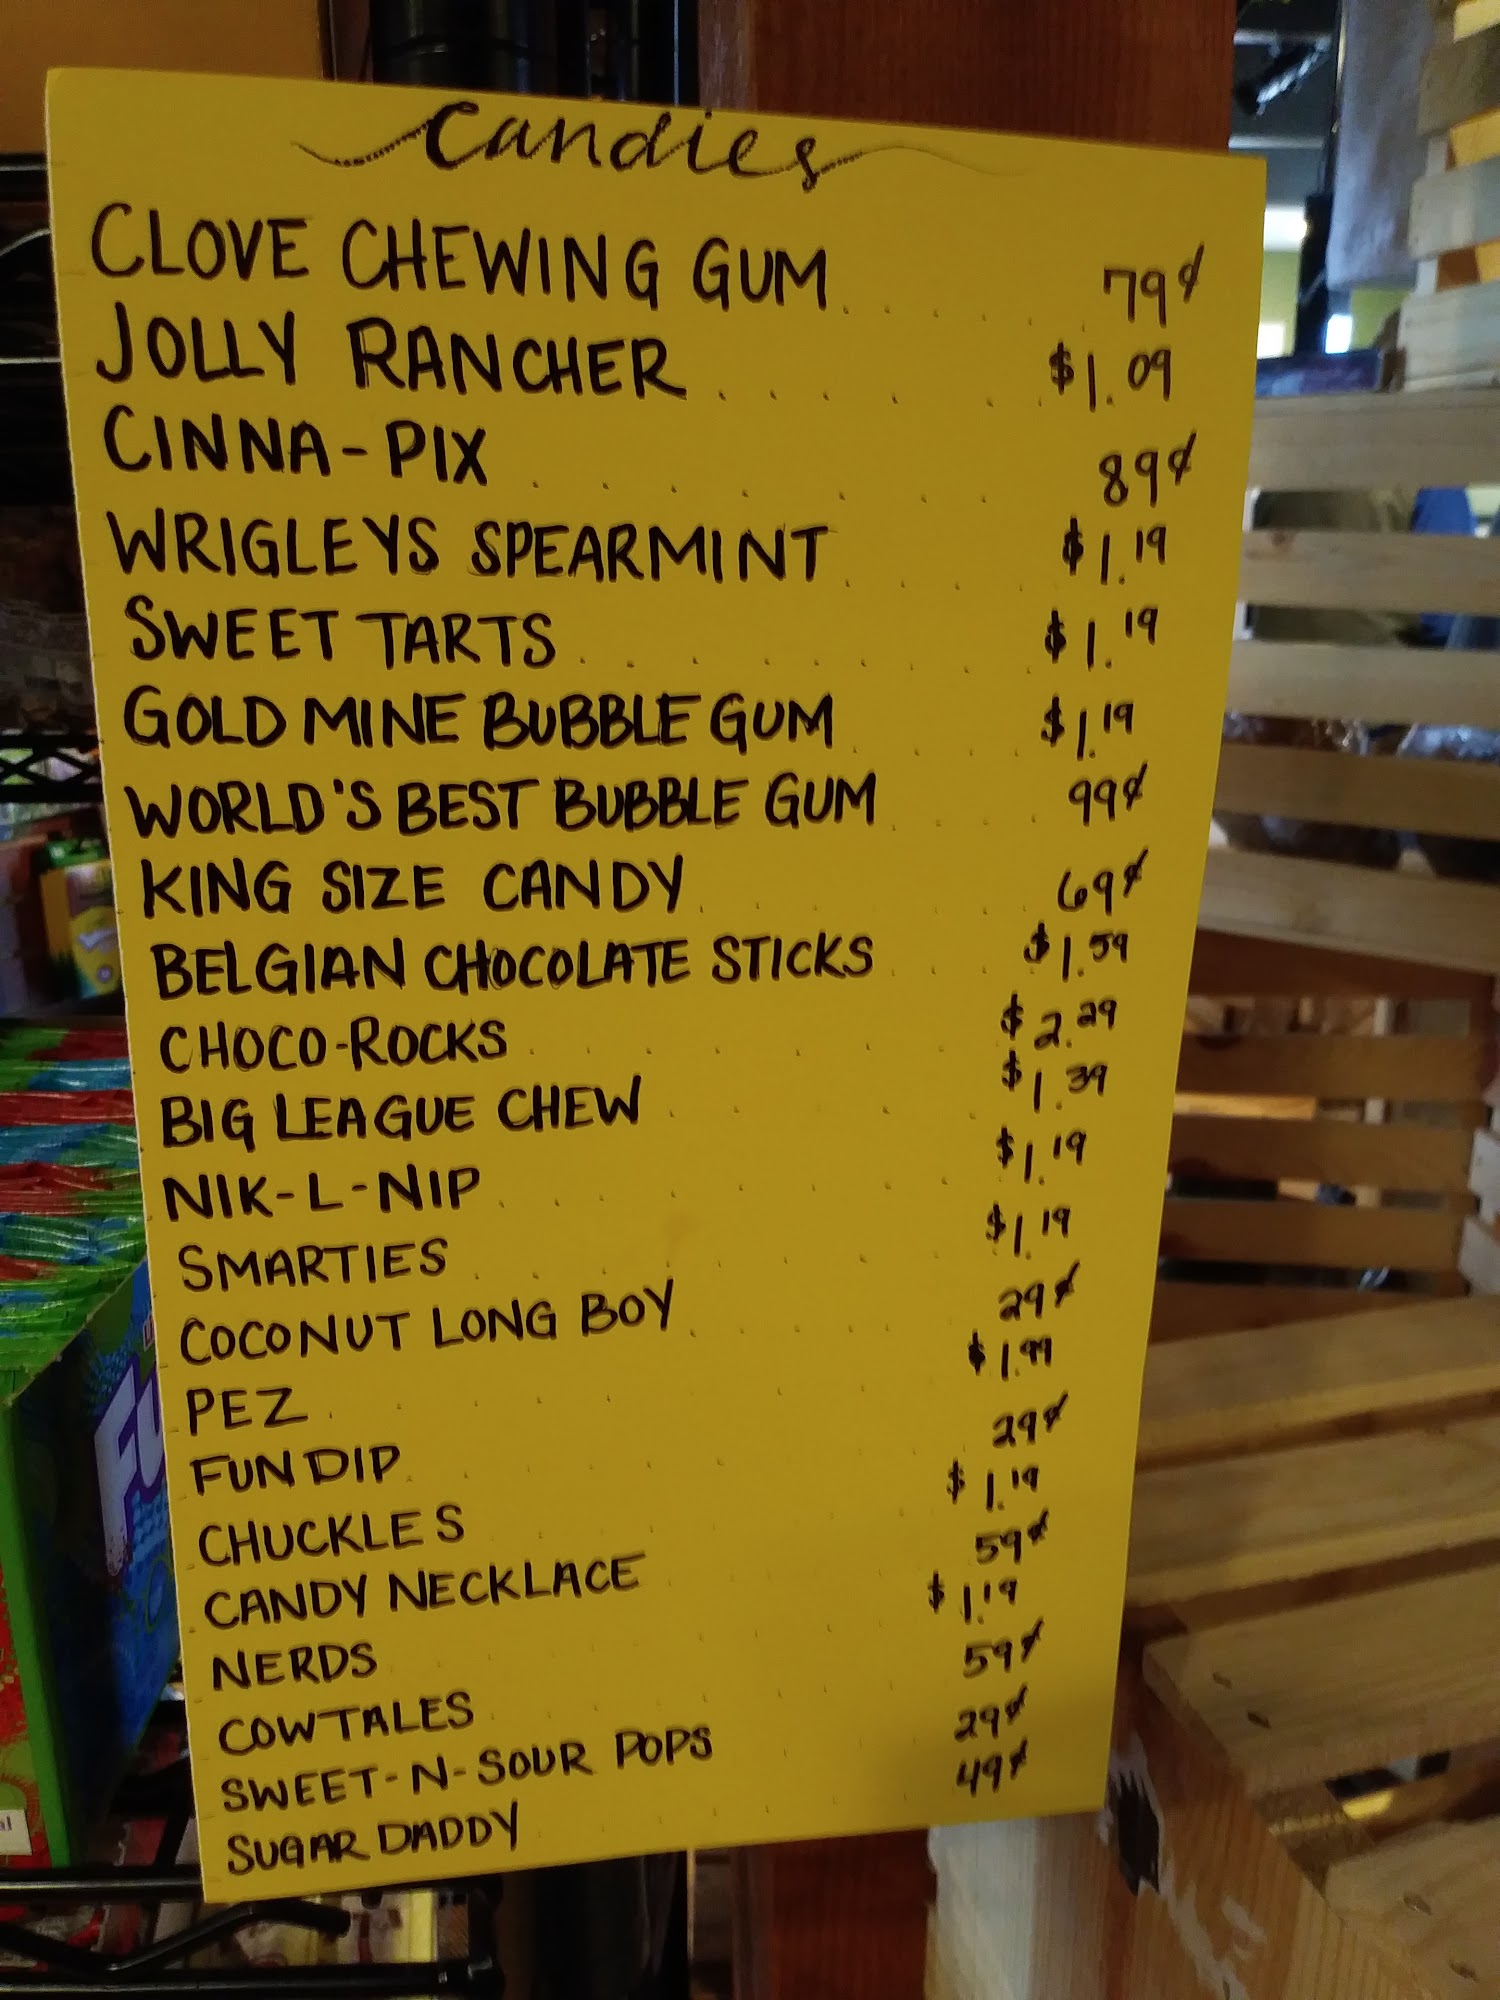 Candies
CLOVE CHEWING GUM . . . . . 79¢
JOLLY RANCHER . . . . . . $1.09
CINNA-PIX . . . . . . . 89¢
WRIGLEYS SPEARMINT . . . . $1.19
SWEET TARTS . . . . . . . . $1.19
GOLD MINE BUBBLE GUM . . . . $1.19
WORLD'S BEST BUBBLE GUM . . . . 99¢
KING SIZE CANDY . . . . . . 69¢
BELGIAN CHOCOLATE STICKS . . . $1.59
CHOCO-ROCKS . . . . . . $2.29
BIG LEAGUE CHEW . . . . . $1.39
NIK-L-NIP . . . . . . . $1.19
SMARTIES . . . . . . . $1.19
COCONUT LONG BOY . . . . . 29¢
PEZ . . . . . . $1.99
FUN DIP . . . . . . 29¢
CHUCKLES $1.19
CANDY NECKLACE 59¢
NERDS $1.19
COWTALES 59¢
SWEET-N-SOUR POPS 29¢
SUGAR DADDY 49¢